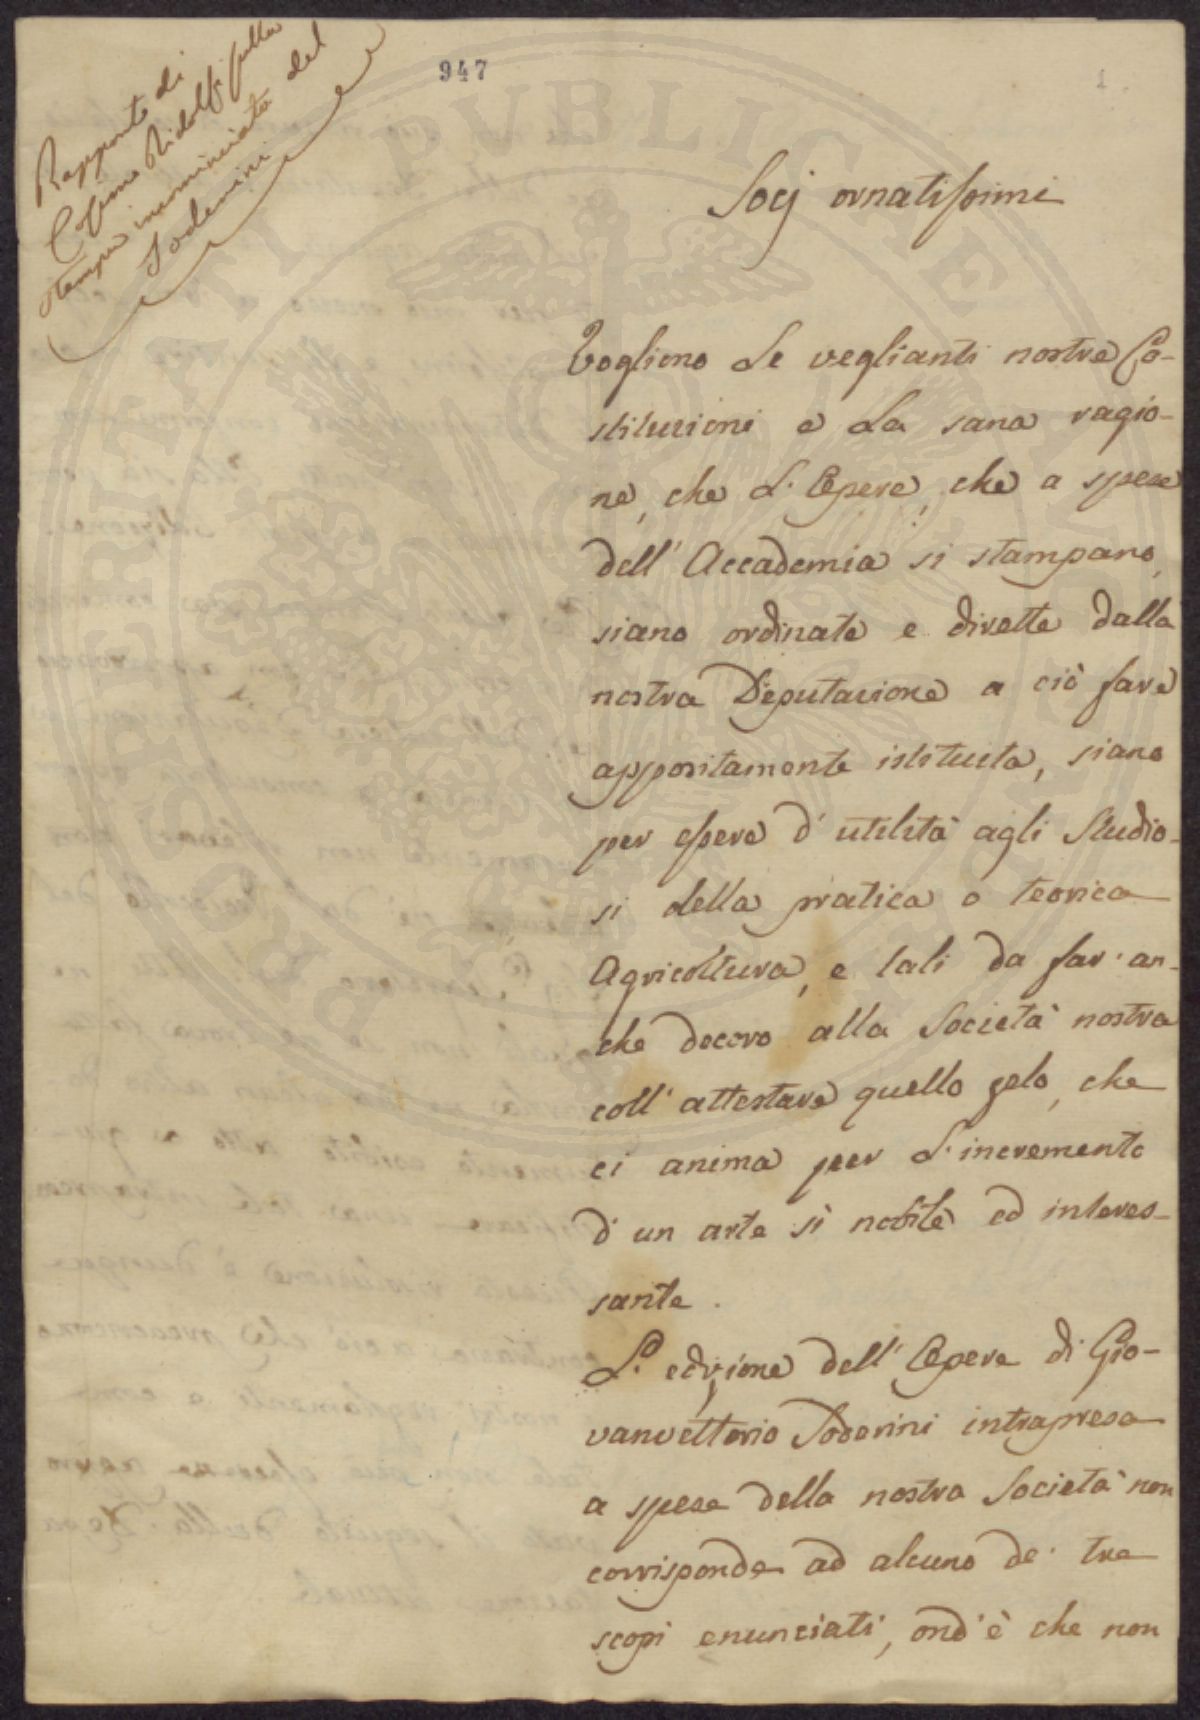 947
1
Rapporto di
Cosimo Ridolfi sulla
stampa incominciata del
Soderini
Socj ornatissimi
Vogliono Le veglianti nostre Co-
stituzioni e La sana ragio-
ne, che L'Opere, che a spese
dell'Accademia si stampano,
siano ordinate e dirette dalla
nostra Deputazione a ciò fare
appositamente istituita, siano
per essere d'utilità agli Studio-
si della pratica o teorica
Agricoltura, e tali da far an-
che decoro alla Società nostra
coll'attestare quello zelo, che
ci anima per L'incremento
d'un arte sì nobile ed interes-
sante.
L'edizione dell'Opere di Gio-
vanvettorio Soderini intrapresa
a spese della nostra Società non
corrisponde ad alcuno de' tre
scopi enunciati, ond'è che non
PROSPERITATI PVBLICAE AVGENDAE